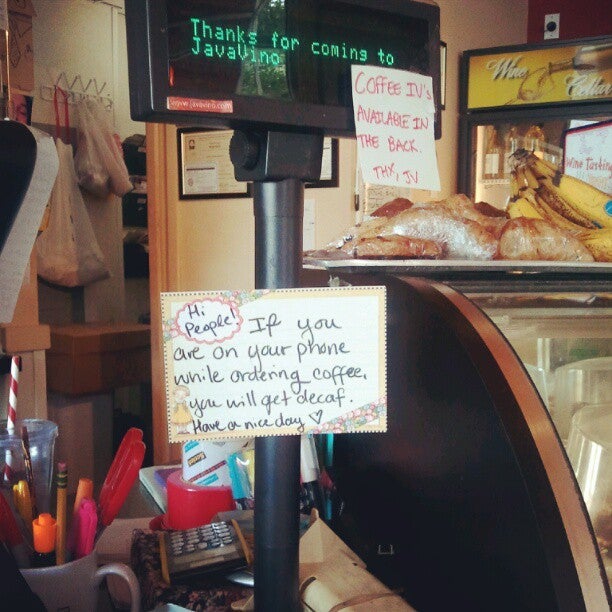 Thanks for coming to
JavaVino
www.javavino.com
COFFEE IV's
AVAILABLE IN
THE BACK.
THX, JV
Wine Cellar
Wine Tasting
Hi
People!
If you
are on your phone
while ordering coffee,
you will get decaf.
Have a nice day ♡